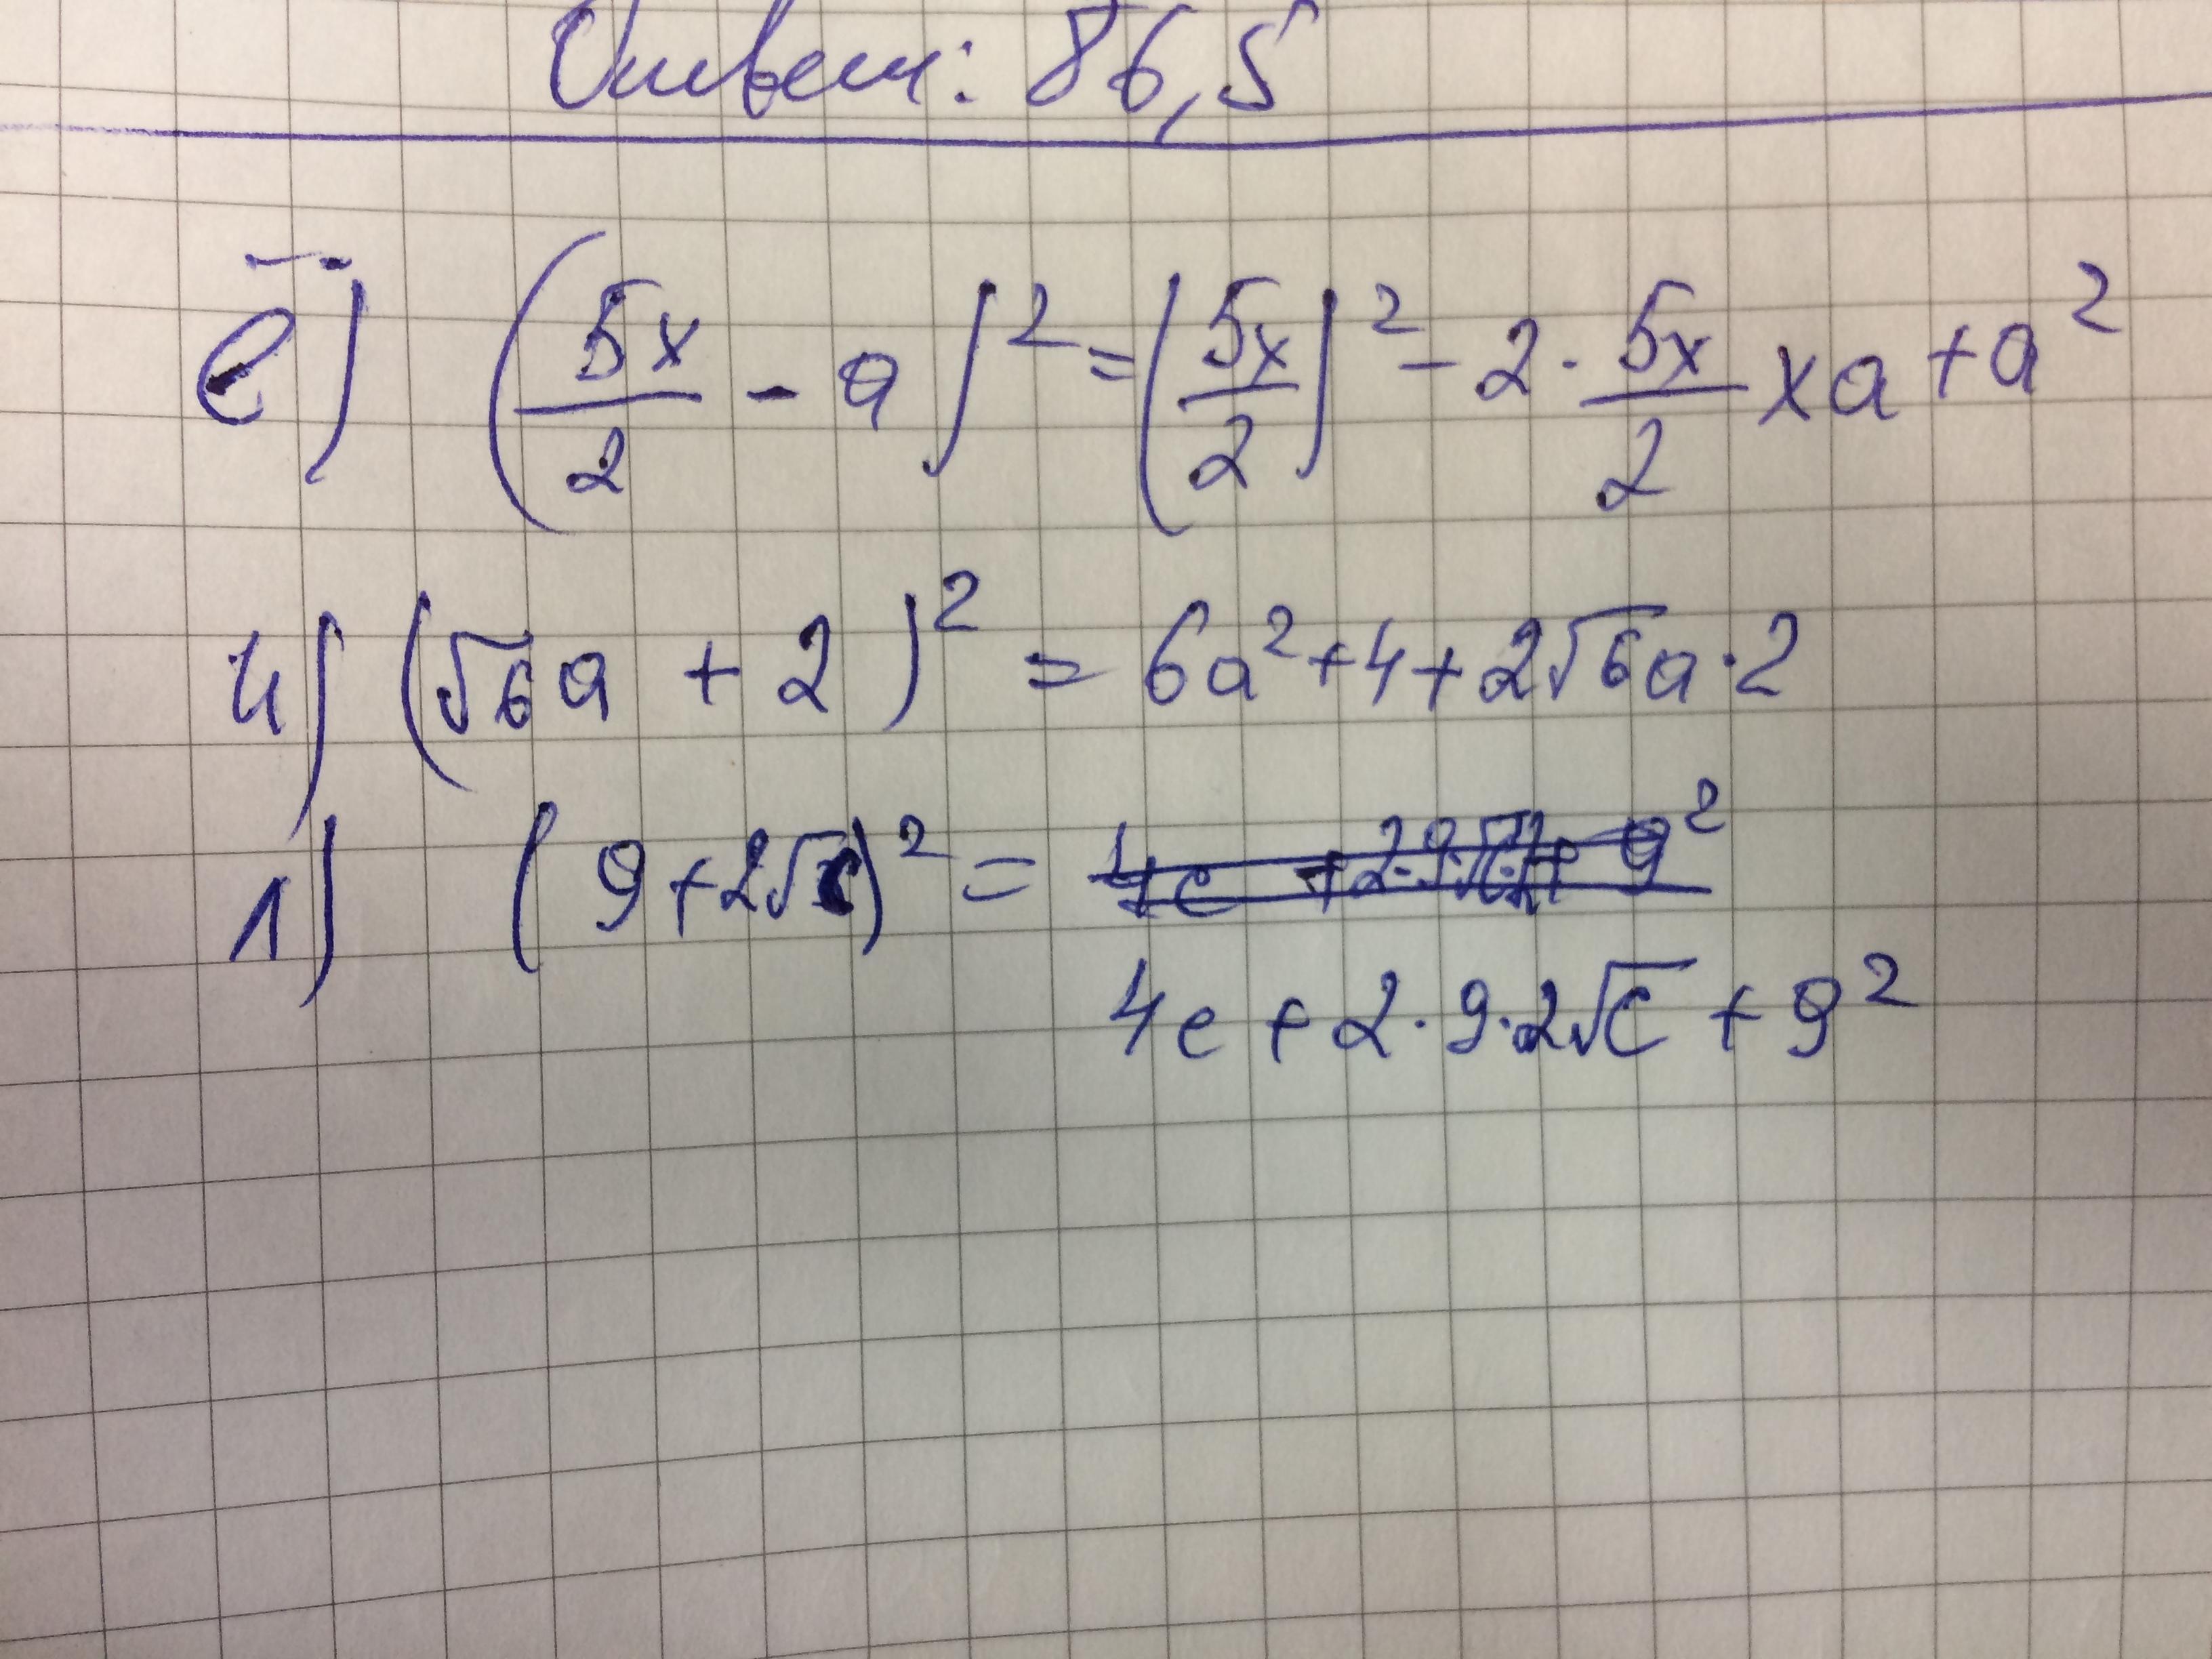 Ответ: 86,5
ё) (5x/2 - a)² = (5x/2)² - 2 · 5x/2 × a + a²
и) (√6a + 2)² = 6a² + 4 + 2√6a · 2
л) (9 + 2√c)² =
4c + 2 · 9 · 2√c + 9²